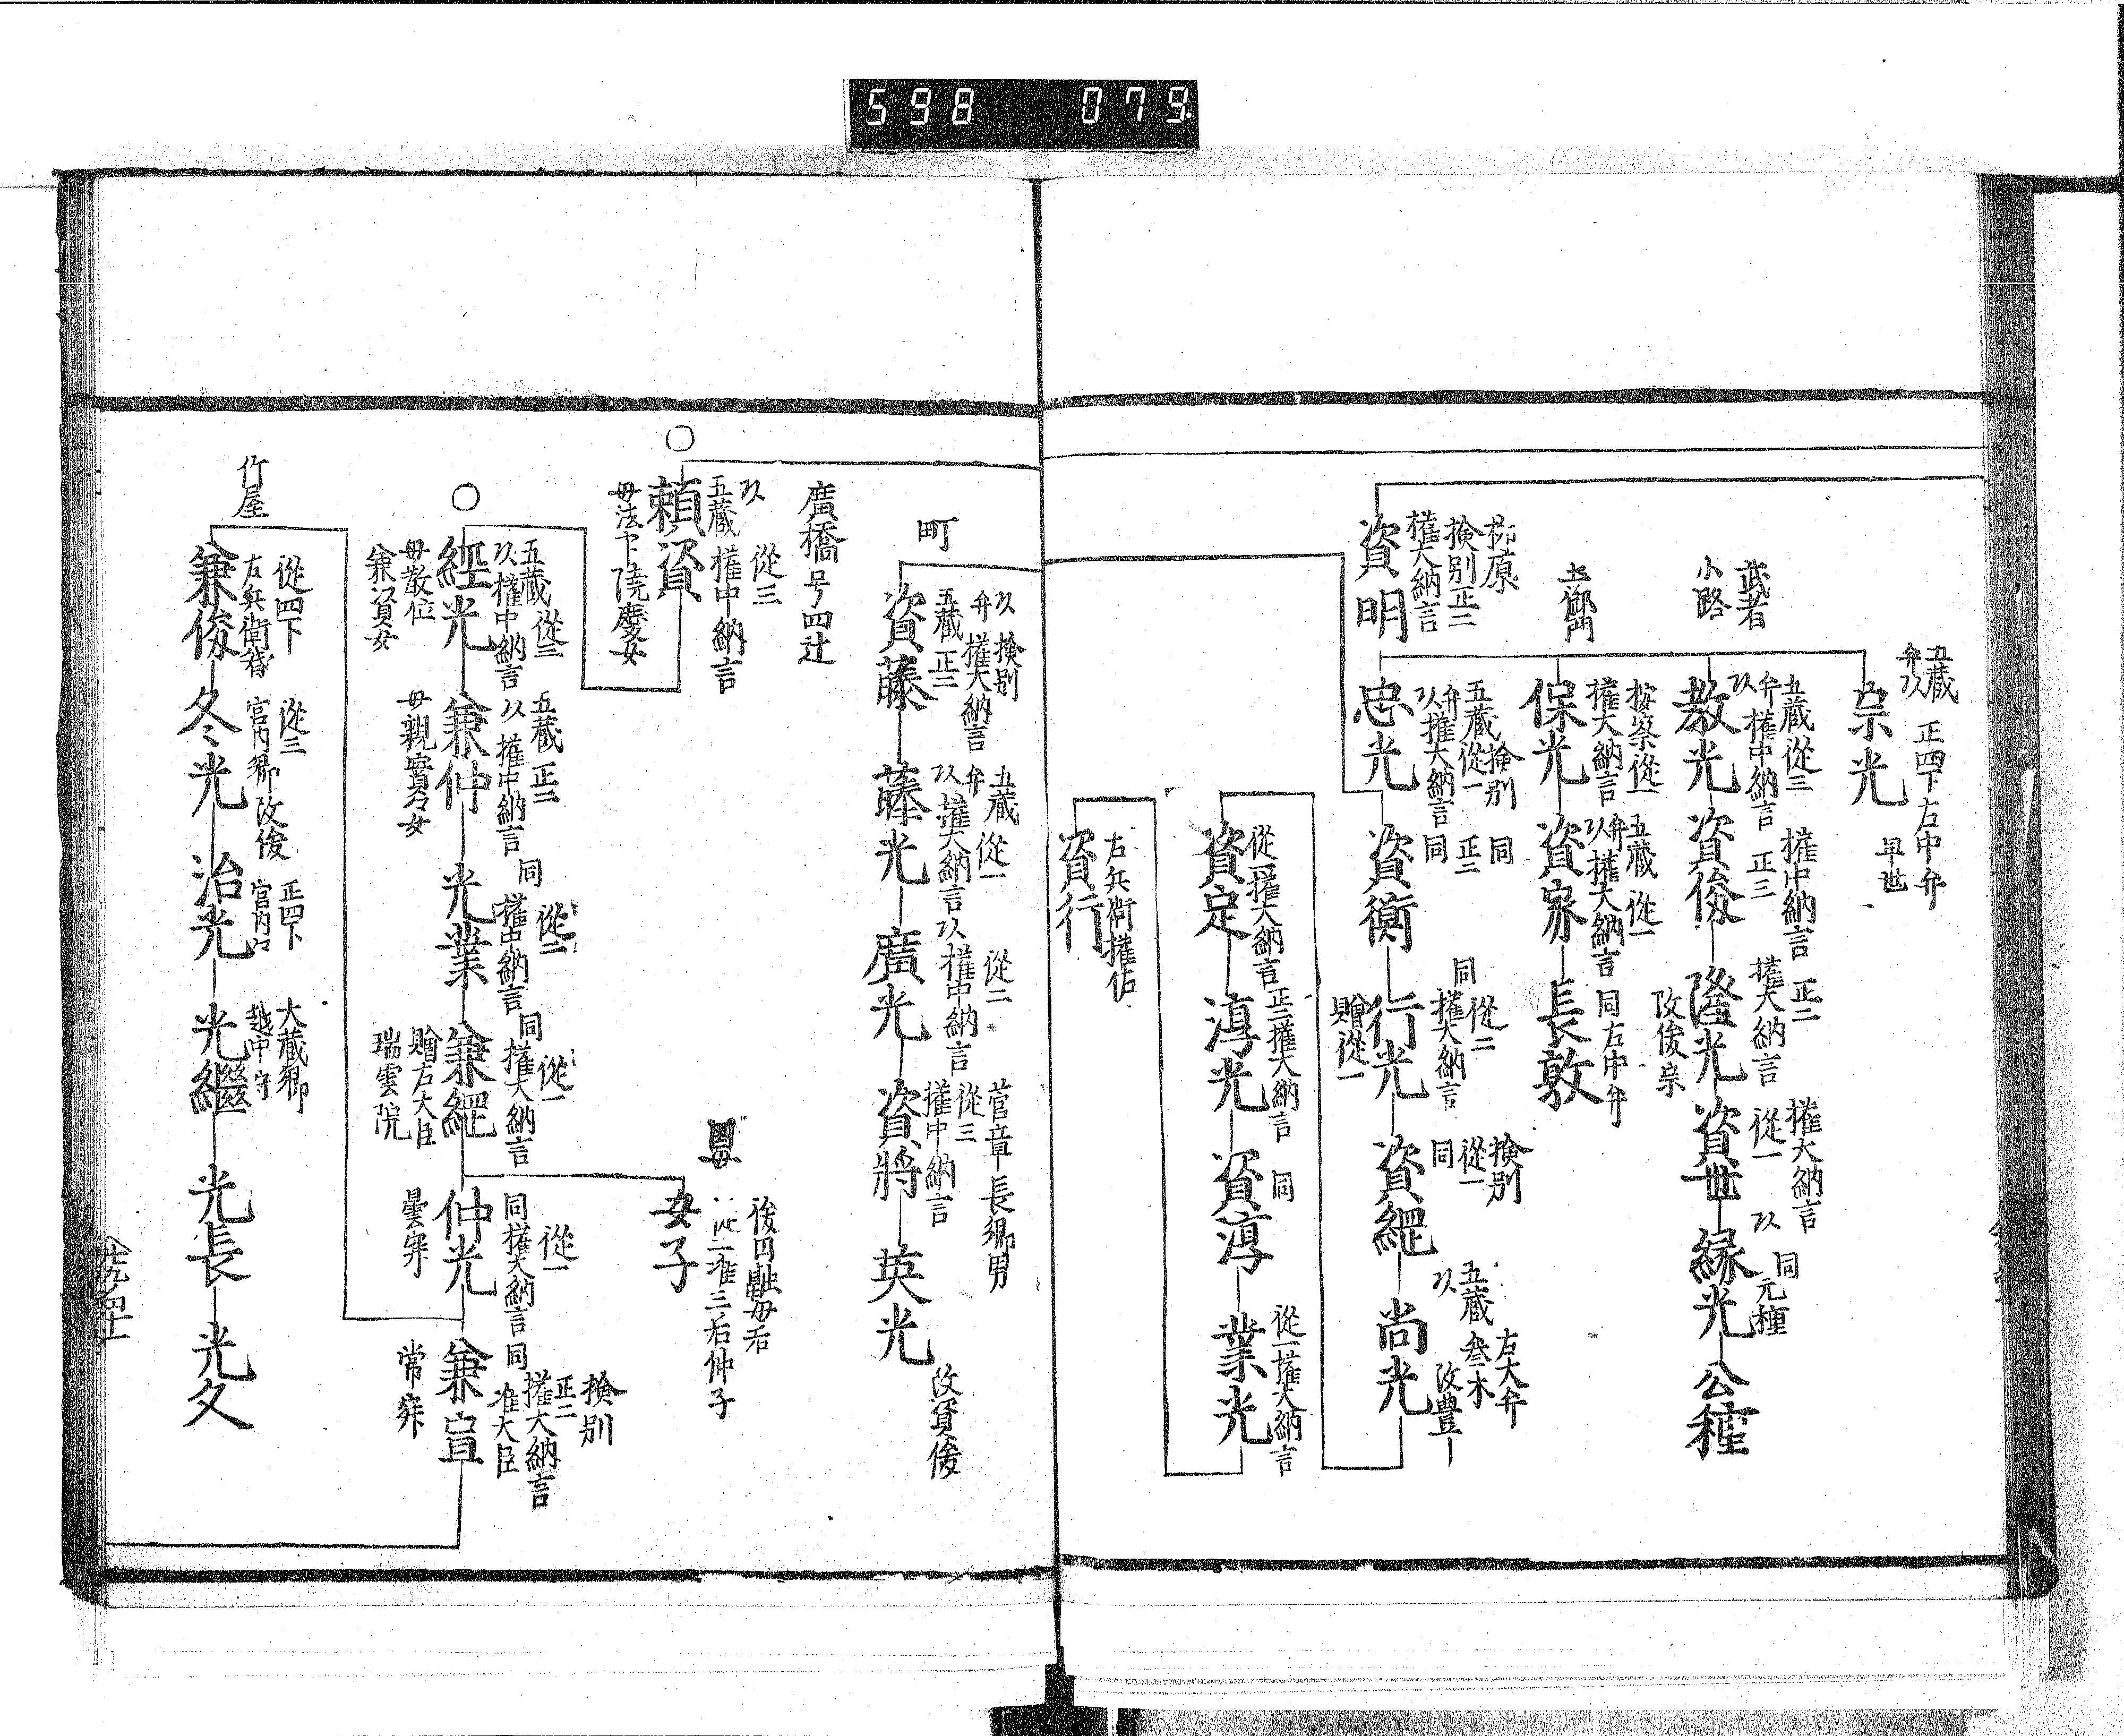 598 079
柳原
検別正二
権大納言
資明
五蔵
弁以
正四下右中弁
早世
宗光
武者
小路
五蔵従三
弁権中納言
以
教光
権中納言
正三
資俊
正二
権大納言
隆光
改俊宗
権大納言
従一
資世
以同
元種
縁光
公種
土御門
按察従一
権大納言
保光
五蔵従一
弁権大納言
以
資家
同右中弁
長敦
検別
五蔵従一
弁権大納言
以
忠光
同
正二
同
資衡
従二
同権大納言
行光
贈従一
検別
従一
同
資綱
五蔵
以
右大弁
参木
改豊—
尚光
従一権大納言
資定
正二権大納言
淳光
同
資淳
従一権大納言
業光
右兵衛権佐
資行
町
検別
以
弁権大納言
五蔵正二
資藤
五蔵従一
弁権大納言
以
藤光
従二
以権中納言
廣光
菅章長卿男
従三
権中納言
資将
英光
改資俊
廣橋号四辻
従三
以
五蔵権中納言
頼資
母法下院慶女
五蔵従二
以権中納言
経光
母散位
兼資女
五蔵正二
以権中納言
兼仲
母親実女
同従二
権中納言
光業
同従一
権大納言
兼綱
贈左大臣
瑞雲院
国母
後円融母后
従二准三后仲子
女子
従一
同権大納言
仲光
曇寂
検別
正二
同権大納言
准大臣
兼宣
常寂
竹屋
従四下
右兵衛督
兼俊
従三
宮内卿改俊
冬光
正四下
宮内
治光
大蔵卿
越中守
光継
光長
光久